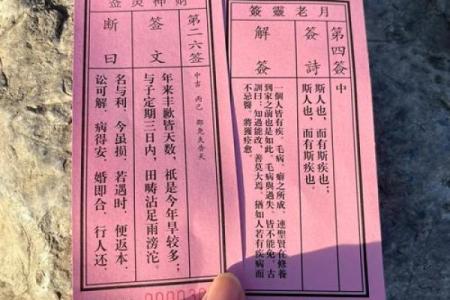 月老靈簽
第四簽
中
簽詩
斯人也，而有斯疾也；
斯人也，而有斯疾也。
解簽
一個人皆有疾、毛病、癖之所成，連聖賢在修養
到家之前也是如此。毛病與過失，皆不能免，古
訓曰：知過能改，善莫大焉，猶如人若有疾病而
不忌醫，將獲痊愈。
财神灵签
第二六签
中吉 丙己 邵堯夫告天
签文
年来丰歉皆天数，祇是今年旱较多；
与子定期三日内，田畴沾足雨滂沱。
断曰
名与利，今虽损，若遇时，便返本，
讼可解，病得安，婚即合，行人还，